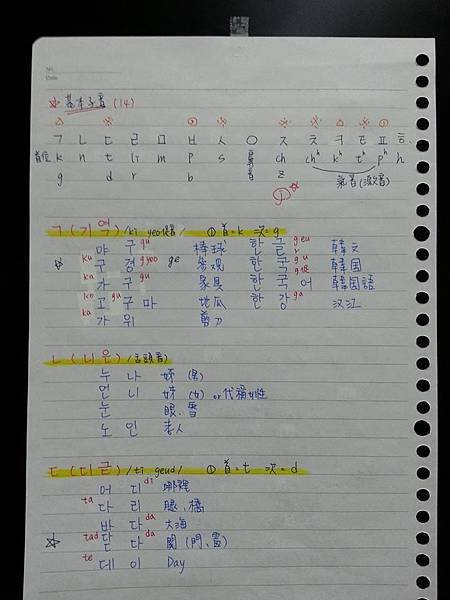 基本子音 (14)
ㄱ ㄴ ㄷ ㄹ ㅁ ㅂ ㅅ ㅇ ㅈ ㅊ ㅋ ㅌ ㅍ ㅎ
首位 k n t li m p s 無聲音 ch chʰ kʰ tʰ pʰ h
g d r b z 氣音(激音)
ㄱ (기역) / ki yeo促音 / ① 首=k 次=g
야구 gu 棒球 한글 geu r 韓文
ku 구경 gyeo ge 參观 한국 gu g促 韓国
ka 가구 gu 家具 한국어 韓国語
ko 고구마 gu 地瓜 한강 ga 汉江
ka 가위 剪刀
ㄴ (니은) / 舌頭音 /
누나 姊 (男)
언니 姊 (女) or代稱女性
눈 眼、雪
노인 老人
ㄷ (디귿) / ti geud / ① 首=t 次=d
어디 di 哪裡
ta 다리 腿、橋
바다 da 大海
tad 닫다 da 関 (門、窗)
te 데이 Day